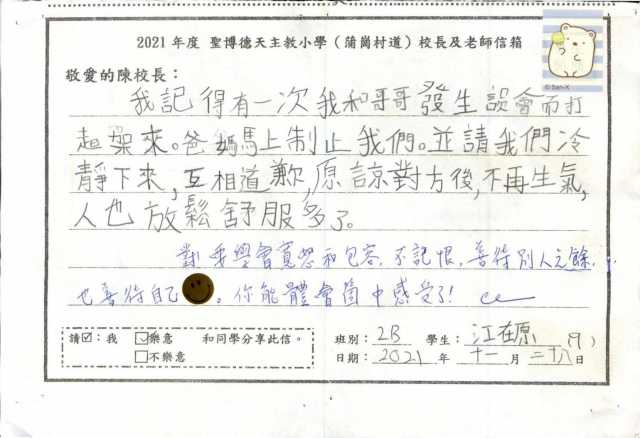 2021 年度 聖博德天主教小學（蒲崗村道）校長及老師信箱
© San-X
敬愛的陳校長：
我記得有一次我和哥哥發生誤會而打
起架來。爸媽馬上制止我們。並請我們冷
靜下來，互相道歉，原諒對方後，不再生氣，
人也放鬆舒服多了。
對！我學會寬恕和包容，不記恨，善待別人之餘，
也善待自己。你能體會箇中感受了！
請☑：我 ☑樂意 和同學分享此信。
□不樂意
班別：2B 學生：江在原 (9)
日期：2021 年 十一 月 二十八 日